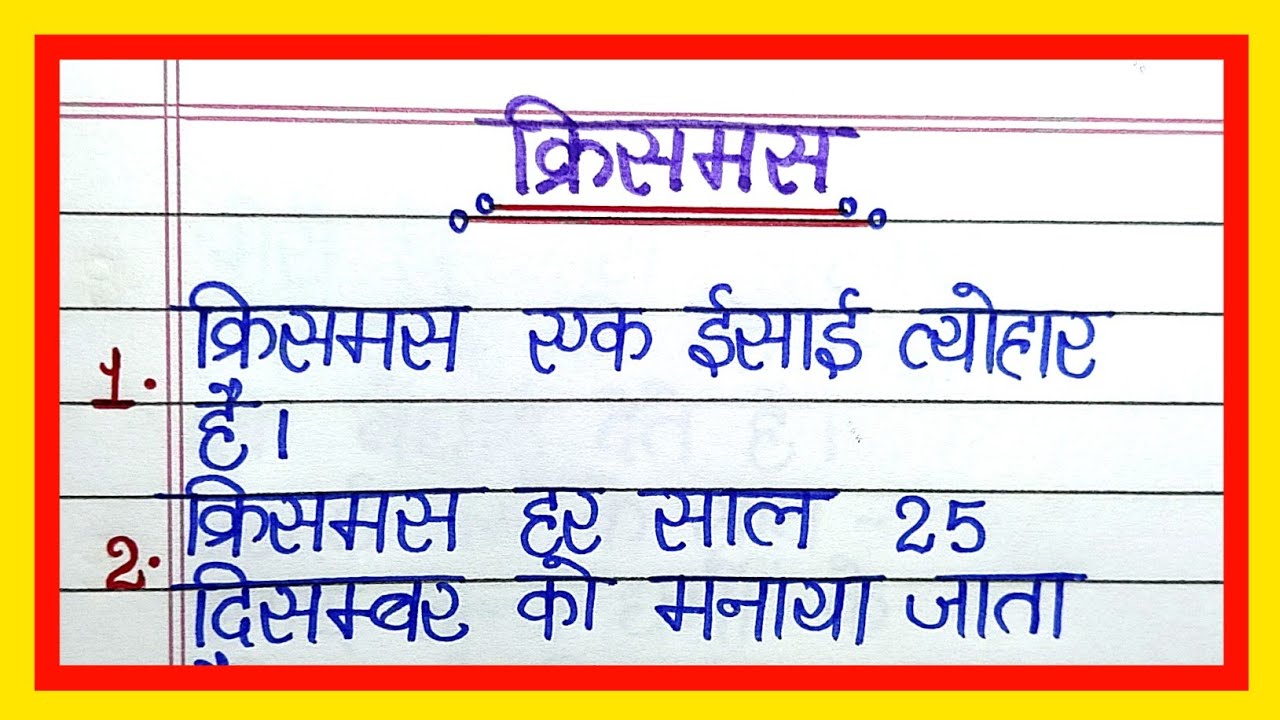 क्रिसमस
1. क्रिसमस एक ईसाई त्योहार
है।
2. क्रिसमस हर साल 25
दिसम्बर को मनाया जाता